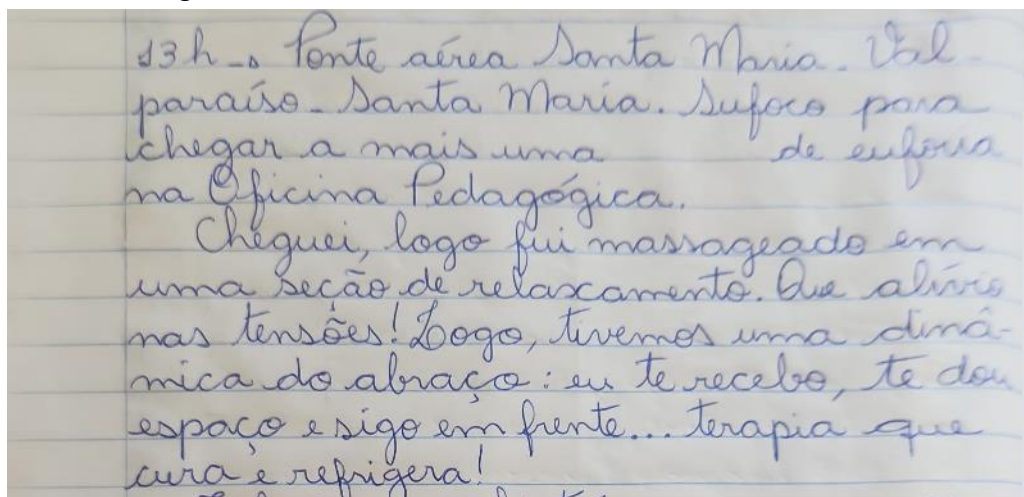 13h → Ponte aérea Santa Maria - Val-
paraíso - Santa Maria. Sufoco para
chegar a mais uma de euforia
na Oficina Pedagógica.
Cheguei, logo fui massageado em
uma seção de relaxamento. Que alívio
nas tensões! Logo, tivemos uma dinâ-
mica do abraço: eu te recebo, te dou
espaço e sigo em frente... terapia que
cura e refrigera!